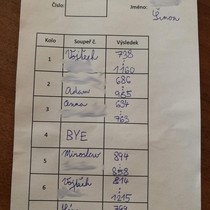 Číslo:
Jméno:
Šimon
Kolo Soupeř č. Výsledek
1 Vojtěch 738 : 1160
2 Adam 686 : 965
3 Anna 654 : 763
4 BYE
5 Miroslav 894 : 858
6 Vojtěch 814 : 1215
764